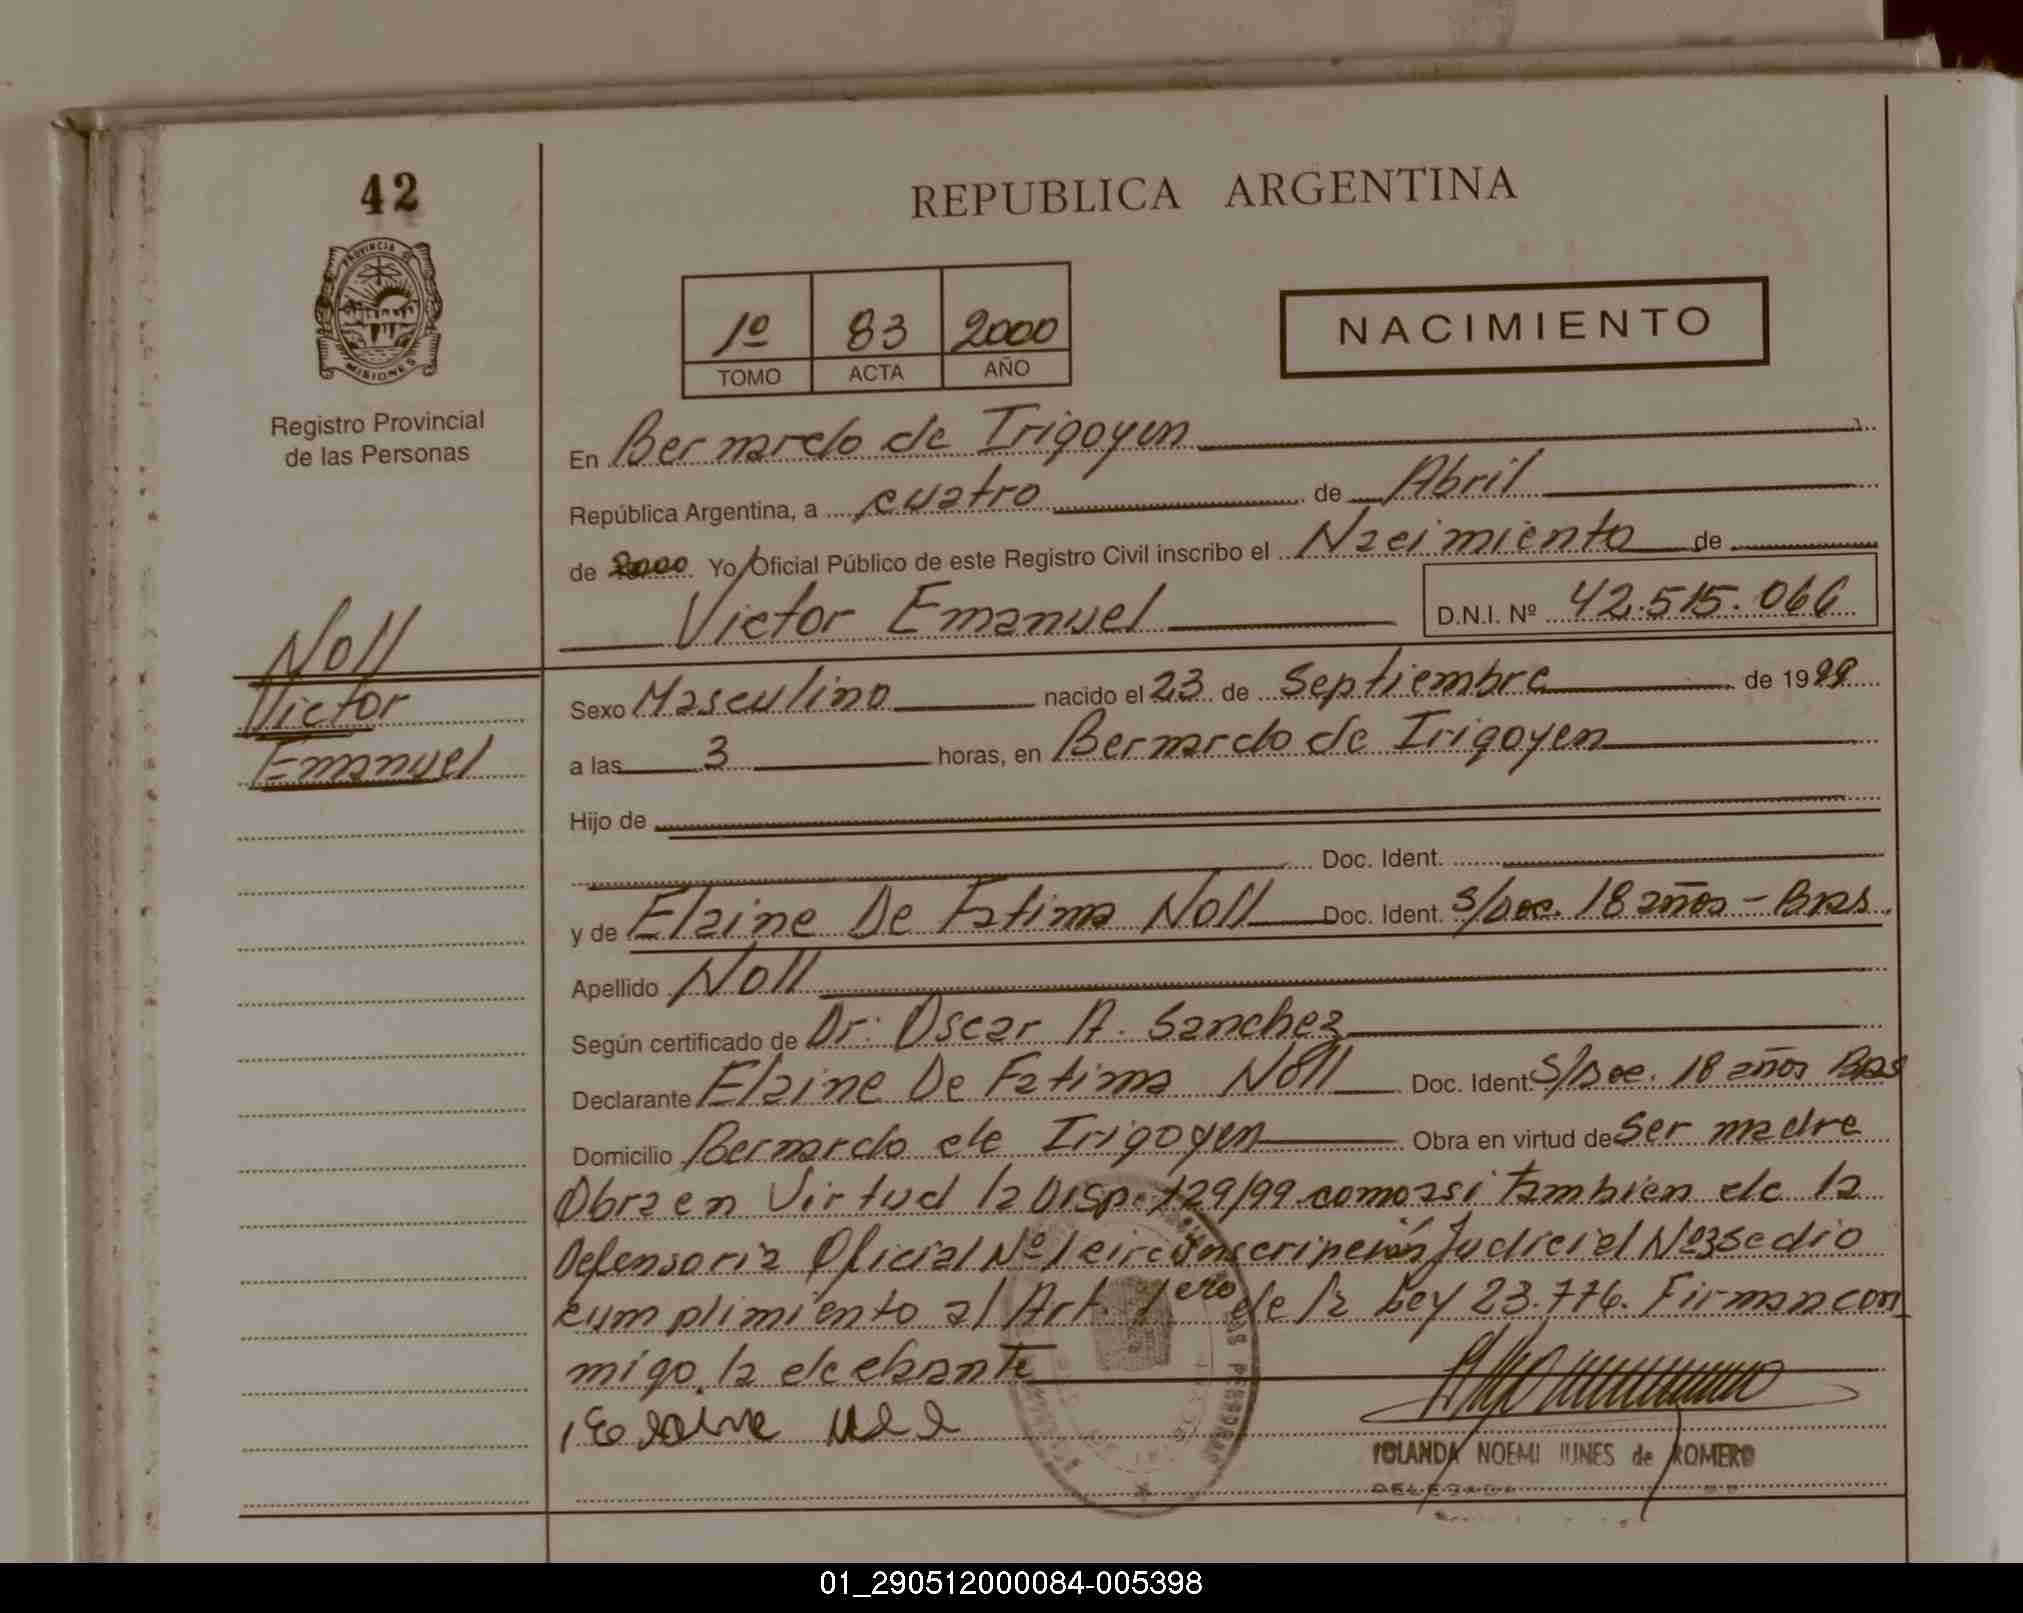 42
REPUBLICA ARGENTINA
PROVINCIA DE MISIONES
1º 83 2000
TOMO ACTA AÑO
NACIMIENTO
Registro Provincial
de las Personas
En Bernardo de Irigoyen
República Argentina, a cuatro de Abril
de 2000 Yo Oficial Público de este Registro Civil inscribo el Nacimiento de
Victor Emanuel D.N.I. Nº 42.515.066
Noll
Victor
Emanuel
Sexo Masculino nacido el 23 de Septiembre de 1999
a las 3 horas, en Bernardo de Irigoyen
Hijo de
Doc. Ident.
y de Elaine De Fatima Noll Doc. Ident. S/Doc. 18 años - Bras.
Apellido Noll
Según certificado de Dr: Oscar A. Sanchez
Declarante Elaine De Fatima Noll Doc. Ident. S/Doc. 18 años Bras
Domicilio Bernardo de Irigoyen Obra en virtud de Ser madre
Obra en Virtud la Disp. 129/99 como asi tambien de la
Defensoria Oficial Nº 1 circunscripción Judicial Nº 3 se dio
cumplimiento al Art. 1ero de la Ley 23.776. Firman con
migo, la declarante
Elaine Noll
YOLANDA NOEMI JUNES de ROMERO
DELEGADA
01_290512000084-005398